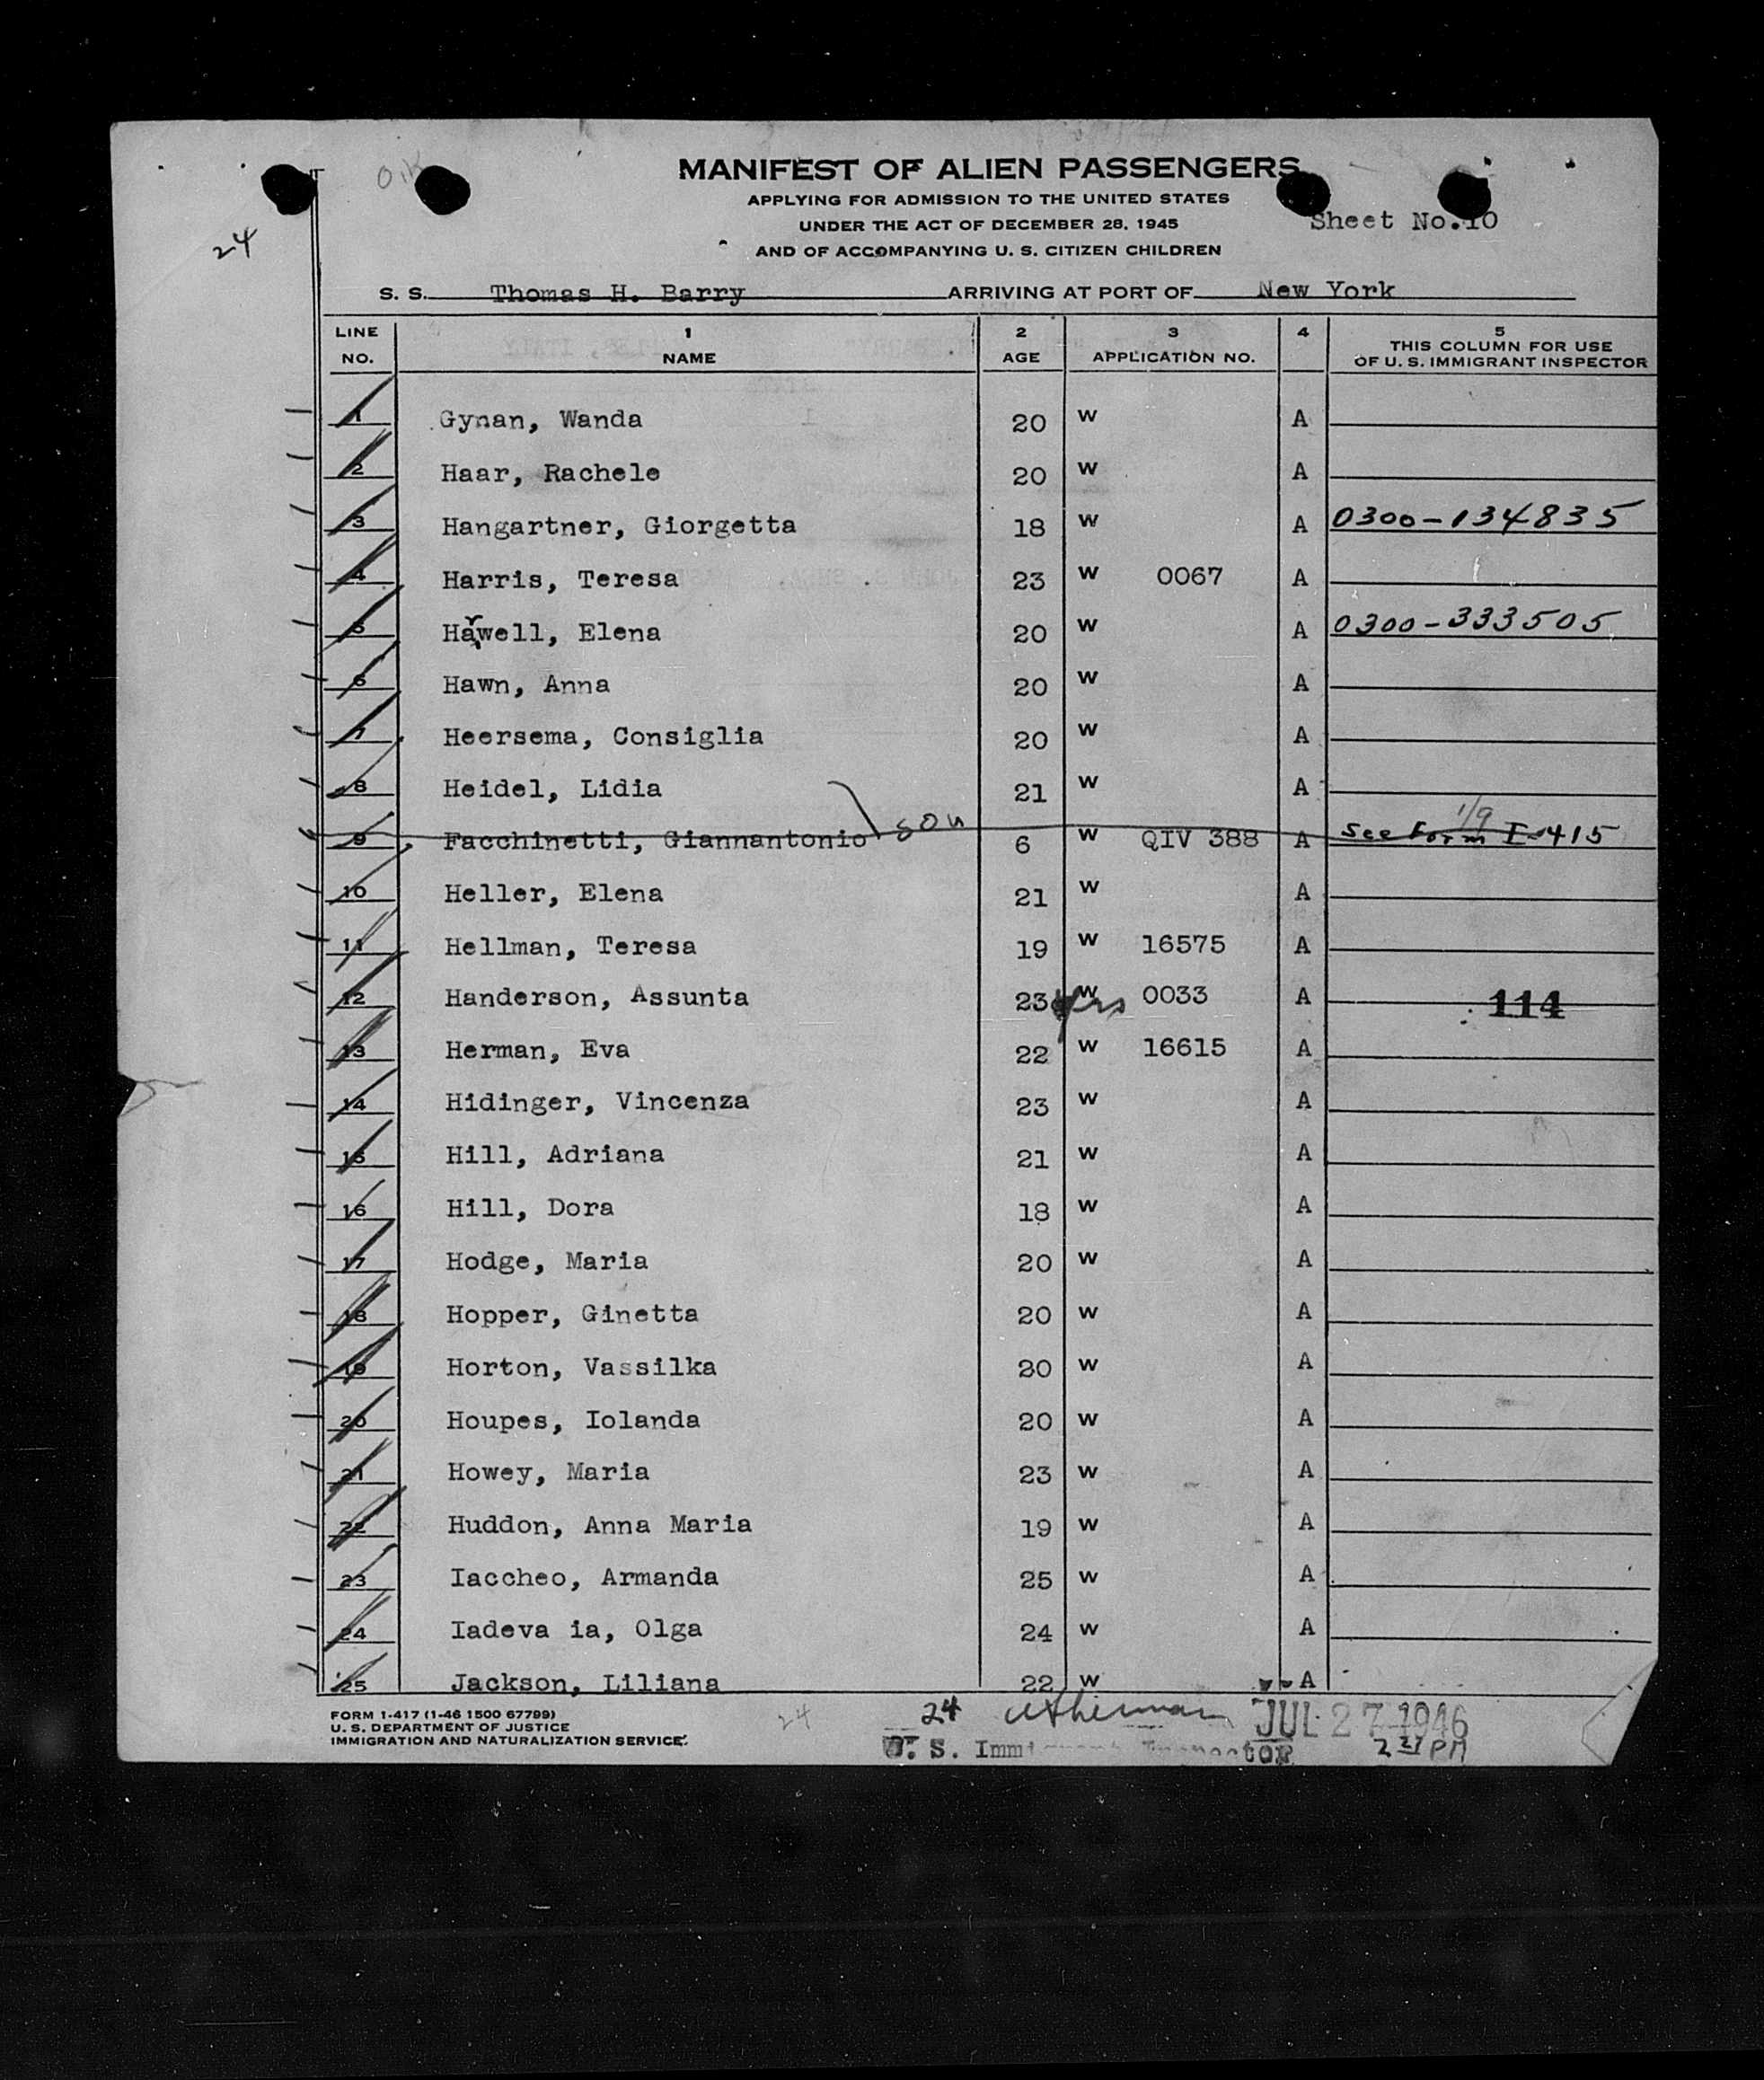 MANIFEST OF ALIEN PASSENGERS
APPLYING FOR ADMISSION TO THE UNITED STATES
UNDER THE ACT OF DECEMBER 28, 1945
AND OF ACCOMPANYING U. S. CITIZEN CHILDREN
Sheet No. 10
24
S. S. Thomas H. Barry ARRIVING AT PORT OF New York
LINE NO. 1 NAME 2 AGE 3 APPLICATION NO. 4 5 THIS COLUMN FOR USE OF U. S. IMMIGRANT INSPECTOR
1 Gynan, Wanda 20 W A
2 Haar, Rachele 20 W A
3 Hangartner, Giorgetta 18 W A 0300-134835
4 Harris, Teresa 23 W 0067 A
5 Harwell, Elena 20 W A 0300-333505
6 Hawn, Anna 20 W A
7 Heersema, Consiglia 20 W A
8 Heidel, Lidia 21 W A
9 Facchinetti, Giannantonio son 6 W QIV 388 A See Form I-415 1/9
10 Heller, Elena 21 W A
11 Hellman, Teresa 19 W 16575 A
12 Handerson, Assunta 23 yrs W 0033 A 114
13 Herman, Eva 22 W 16615 A
14 Hidinger, Vincenza 23 W A
15 Hill, Adriana 21 W A
16 Hill, Dora 18 W A
17 Hodge, Maria 20 W A
18 Hopper, Ginetta 20 W A
19 Horton, Vassilka 20 W A
20 Houpes, Iolanda 20 W A
21 Howey, Maria 23 W A
22 Huddon, Anna Maria 19 W A
23 Iaccheo, Armanda 25 W A
24 Iadeva ia, Olga 24 W A
25 Jackson, Liliana 22 W A
FORM I-417 (1-46 1500 67799)
U. S. DEPARTMENT OF JUSTICE
IMMIGRATION AND NATURALIZATION SERVICE
24 24 JUL 27 1946
U. S. Immigrant Inspector 2 PM